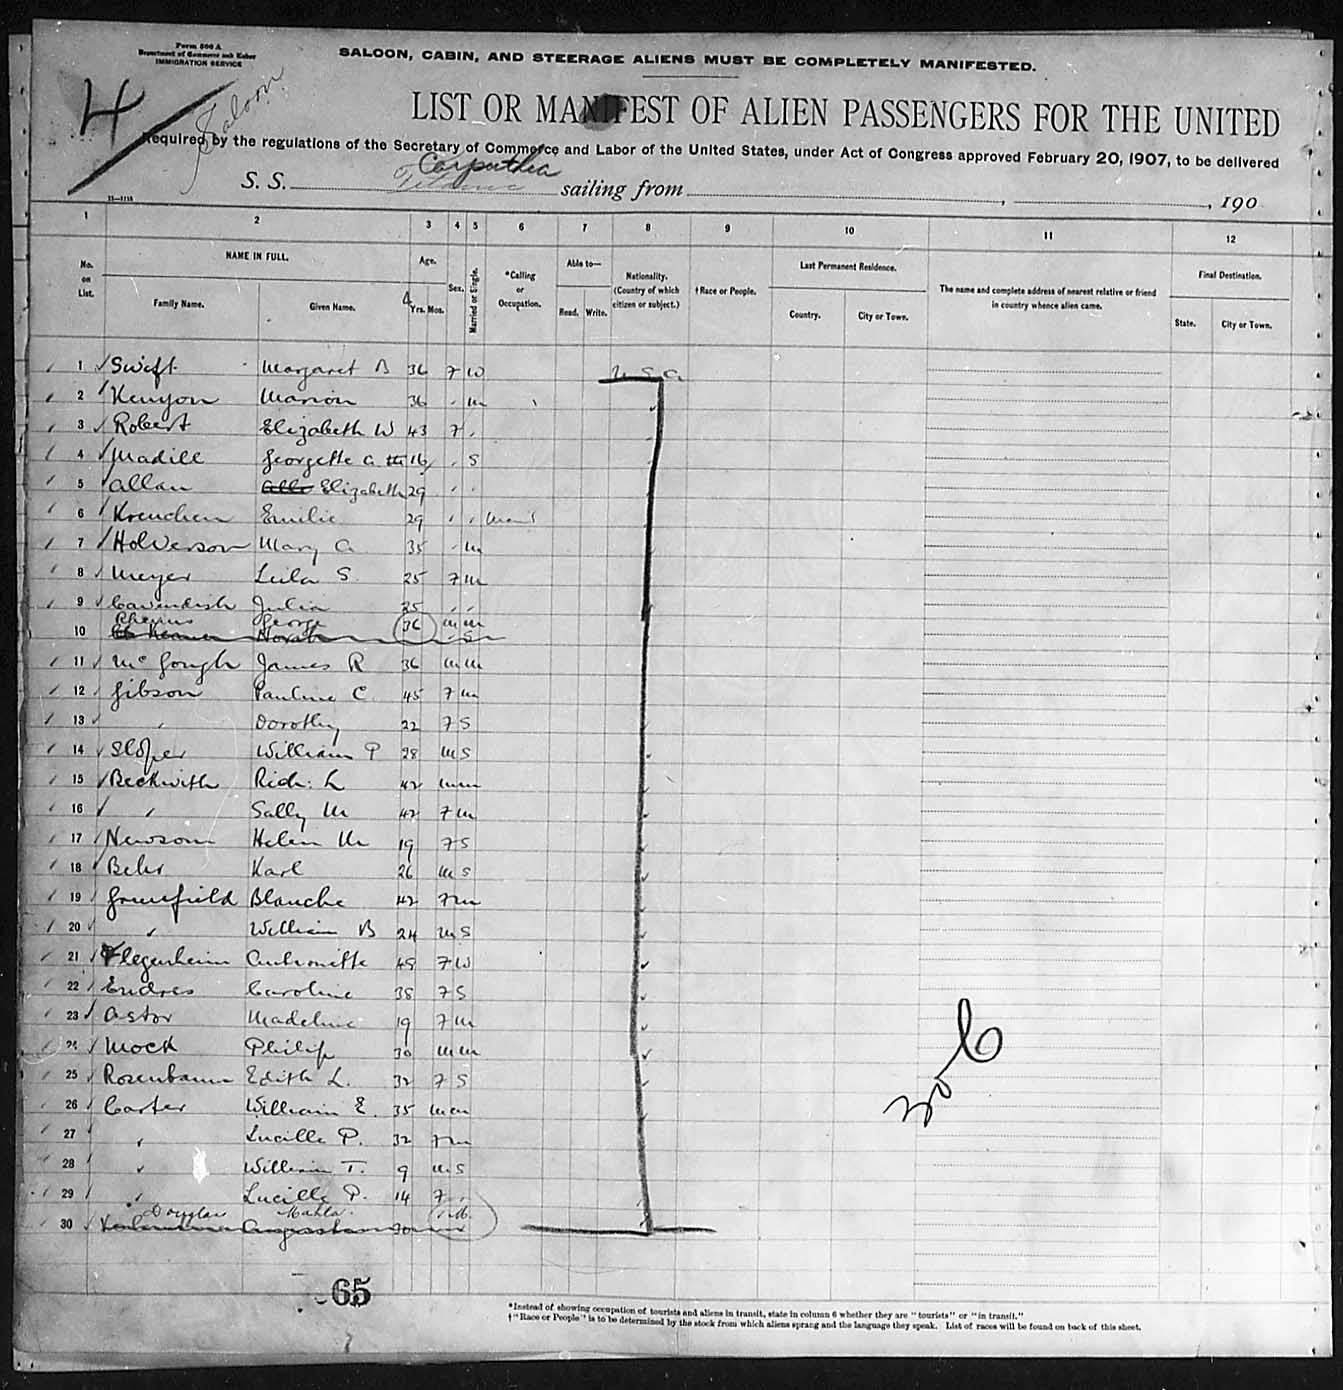 Form 500 A
Department of Commerce and Labor
IMMIGRATION SERVICE
SALOON, CABIN, AND STEERAGE ALIENS MUST BE COMPLETELY MANIFESTED.
4
Saloon
LIST OR MANIFEST OF ALIEN PASSENGERS FOR THE UNITED
Required by the regulations of the Secretary of Commerce and Labor of the United States, under Act of Congress approved February 20, 1907, to be delivered
Carpathia
S. S. Titanic sailing from , , 190
1 2 3 4 5 6 7 8 9 10 11 12
No. on List. NAME IN FULL. Age. Sex. Married or Single. *Calling or Occupation. Able to— Nationality. (Country of which citizen or subject.) †Race or People. Last Permanent Residence. The name and complete address of nearest relative or friend in country whence alien came. Final Destination.
Family Name. Given Name. Yrs. Mos. Read. Write. Country. City or Town. State. City or Town.
1 Swift Margaret B 36 F W U S A
2 Kenyon Marion 36 " m
3 Robert Elizabeth W 43 F "
4 Madill Georgette A 16 " S
5 Allan Elizabeth 29 " "
6 Kreuchen Emilie 29 " " Maid
7 Holverson Mary A 35 " m
8 Meyer Leila S. 25 F m
9 Cavendish Julia 25 " "
Rheims George 36 m m
10 Norah S
11 McGough James R 36 m m
12 Gibson Pauline C 45 F m
13 " Dorothy 22 F S
14 Sloper William P 28 m S
15 Beckwith Rich: L 42 m m
16 " Sally M 42 F m
17 Newsom Helen M 19 F S
18 Behr Karl 26 m S
19 Greenfield Blanche 42 F m
20 " William B 24 m S
21 Flegenheim Antionette 45 F W
22 Endres Caroline 38 F S
23 Astor Madeline 19 F m
24 Mock Philip 30 m m
25 Rosenbaum Edith L. 32 F S
26 Carter William E. 35 m m
27 " Lucille P. 32 F m
28 " William T. 9 m S
29 " Lucille P. 14 F "
Douglas Mahla
30 30
306
65
*Instead of showing occupation of tourists and aliens in transit, state in column 6 whether they are "tourists" or "in transit."
†"Race or People" is to be determined by the stock from which aliens sprang and the language they speak. List of races will be found on back of this sheet.